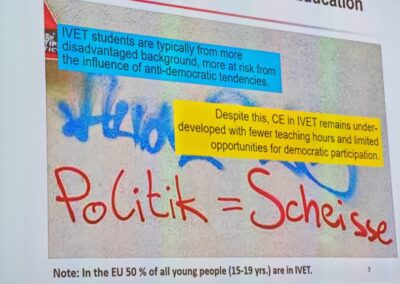 Education
IVET students are typically from more
disadvantaged background, more at risk from
the influence of anti-democratic tendencies.
Despite this, CE in IVET remains under-
developed with fewer teaching hours and limited
opportunities for democratic participation.
Politik = Scheisse
Note: In the EU 50 % of all young people (15-19 yrs.) are in IVET.
3